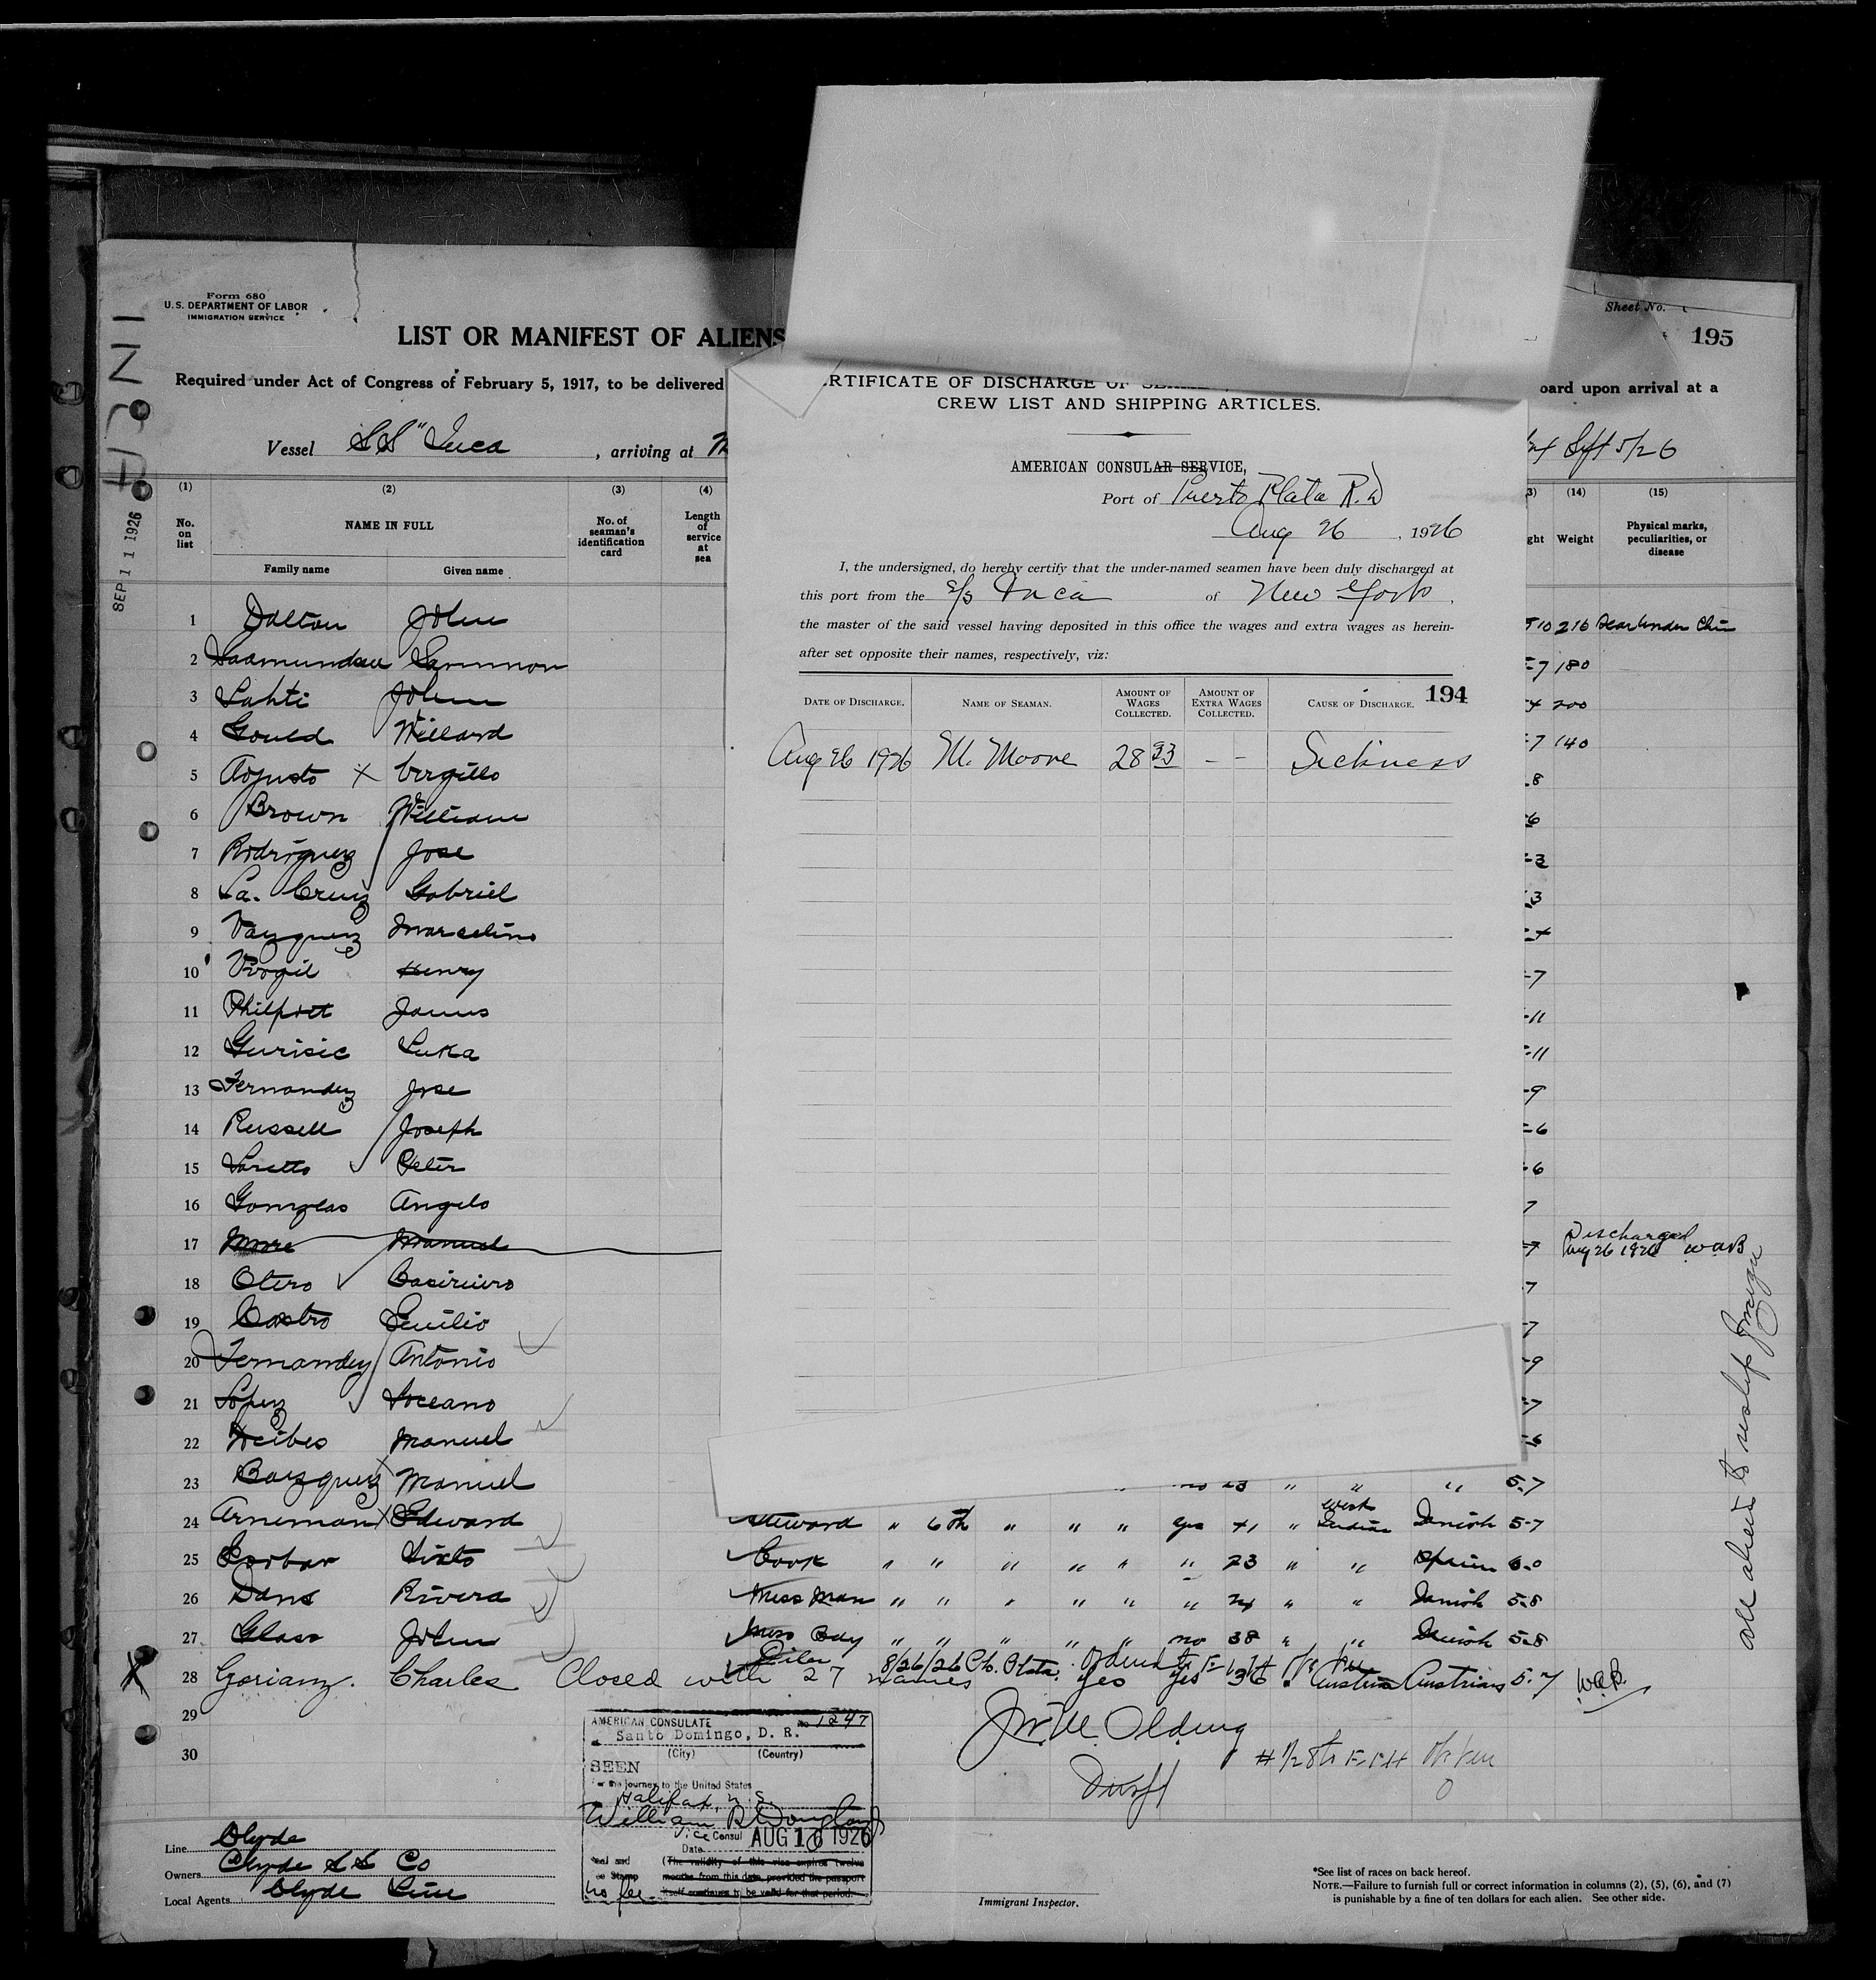 Form 680
U.S. DEPARTMENT OF LABOR
IMMIGRATION SERVICE
Sheet No.
195
LIST OR MANIFEST OF ALIENS
Required under Act of Congress of February 5, 1917, to be delivered
oard upon arrival at a
Vessel SS "Inca , arriving at
Sept 5/26
SEP 11 1926
(1) (2) (3) (4)
No. on list
NAME IN FULL
Family name Given name
No. of seaman's identification card
Length of service at sea
(14) (15)
ght Weight
Physical marks, peculiarities, or disease
RTIFICATE OF DISCHARGE OF
CREW LIST AND SHIPPING ARTICLES.
AMERICAN CONSULAR SERVICE,
Port of Puerto Plata R.D
Aug 26, 1926
I, the undersigned, do hereby certify that the under-named seamen have been duly discharged at
this port from the S/S Inca of New York,
the master of the said vessel having deposited in this office the wages and extra wages as herein-
after set opposite their names, respectively, viz:
194
DATE OF DISCHARGE. NAME OF SEAMAN. AMOUNT OF WAGES COLLECTED. AMOUNT OF EXTRA WAGES COLLECTED. CAUSE OF DISCHARGE.
Aug 26 1926 M. Moore 28 93 - - Sickness
1 Dalton John 10 216 Scar Under Chin
2 Saamundsen 7 180
3 Lahti John 200
4 Gould Willard 7 140
5 Agusto X Virgilio 8
6 Brown William 6
7 Rodriguez Jose 3
8 La. Cruz Gabriel 3
9 Vazquez Marcelino
10 Virgil Henry 7
11 Philpott James 11
12 Gurisic Luka 11
13 Fernandez Jose 9
14 Russell Joseph 6
15 Loretto Peter 6
16 Angelo 7
17 More Manuel 7 Discharged Aug 26 1926 WAB
18 Otero Casimiro 7
19 Castro Emilio 7
20 Fernandez Antonio 9
21 Lopez 7
22 Manuel 6
23 Bazquez Manuel no 23 " " " 5-7
24 Arneman X Edward Steward " 6th " " " yes 41 " West Indian Danish 5-7
25 Sixto Cook " " " " " " 23 " " Spain 6-0
26 Dans Rivera Mess Man " " " " " " 24 " " Danish 5-8
27 Glass John Mess Boy " " " " " no 38 " " Danish 5-8
X 28 Gorianz. Charles Closed with 27 names
Oiler 8/26/26 Pto. Plata. Yes Yes 36 Austria Austrian 5.7 WAB.
29
30
all aliens to reship foreign
AMERICAN CONSULATE No 1247
Santo Domingo, D. R.
(City) (Country)
SEEN
For the journey to the United States
Halifax, N.S.
William B Douglass
Vice Consul AUG 16 1926
Date
Seal and
ee Stamp
(The validity of this visa expires twelve
months from this date provided the passport
itself continues to be valid for that period.
No fee.
Line Clyde
Owners Clyde SS Co
Local Agents Clyde Line
Immigrant Inspector.
*See list of races on back hereof.
NOTE.—Failure to furnish full or correct information in columns (2), (5), (6), and (7)
is punishable by a fine of ten dollars for each alien. See other side.